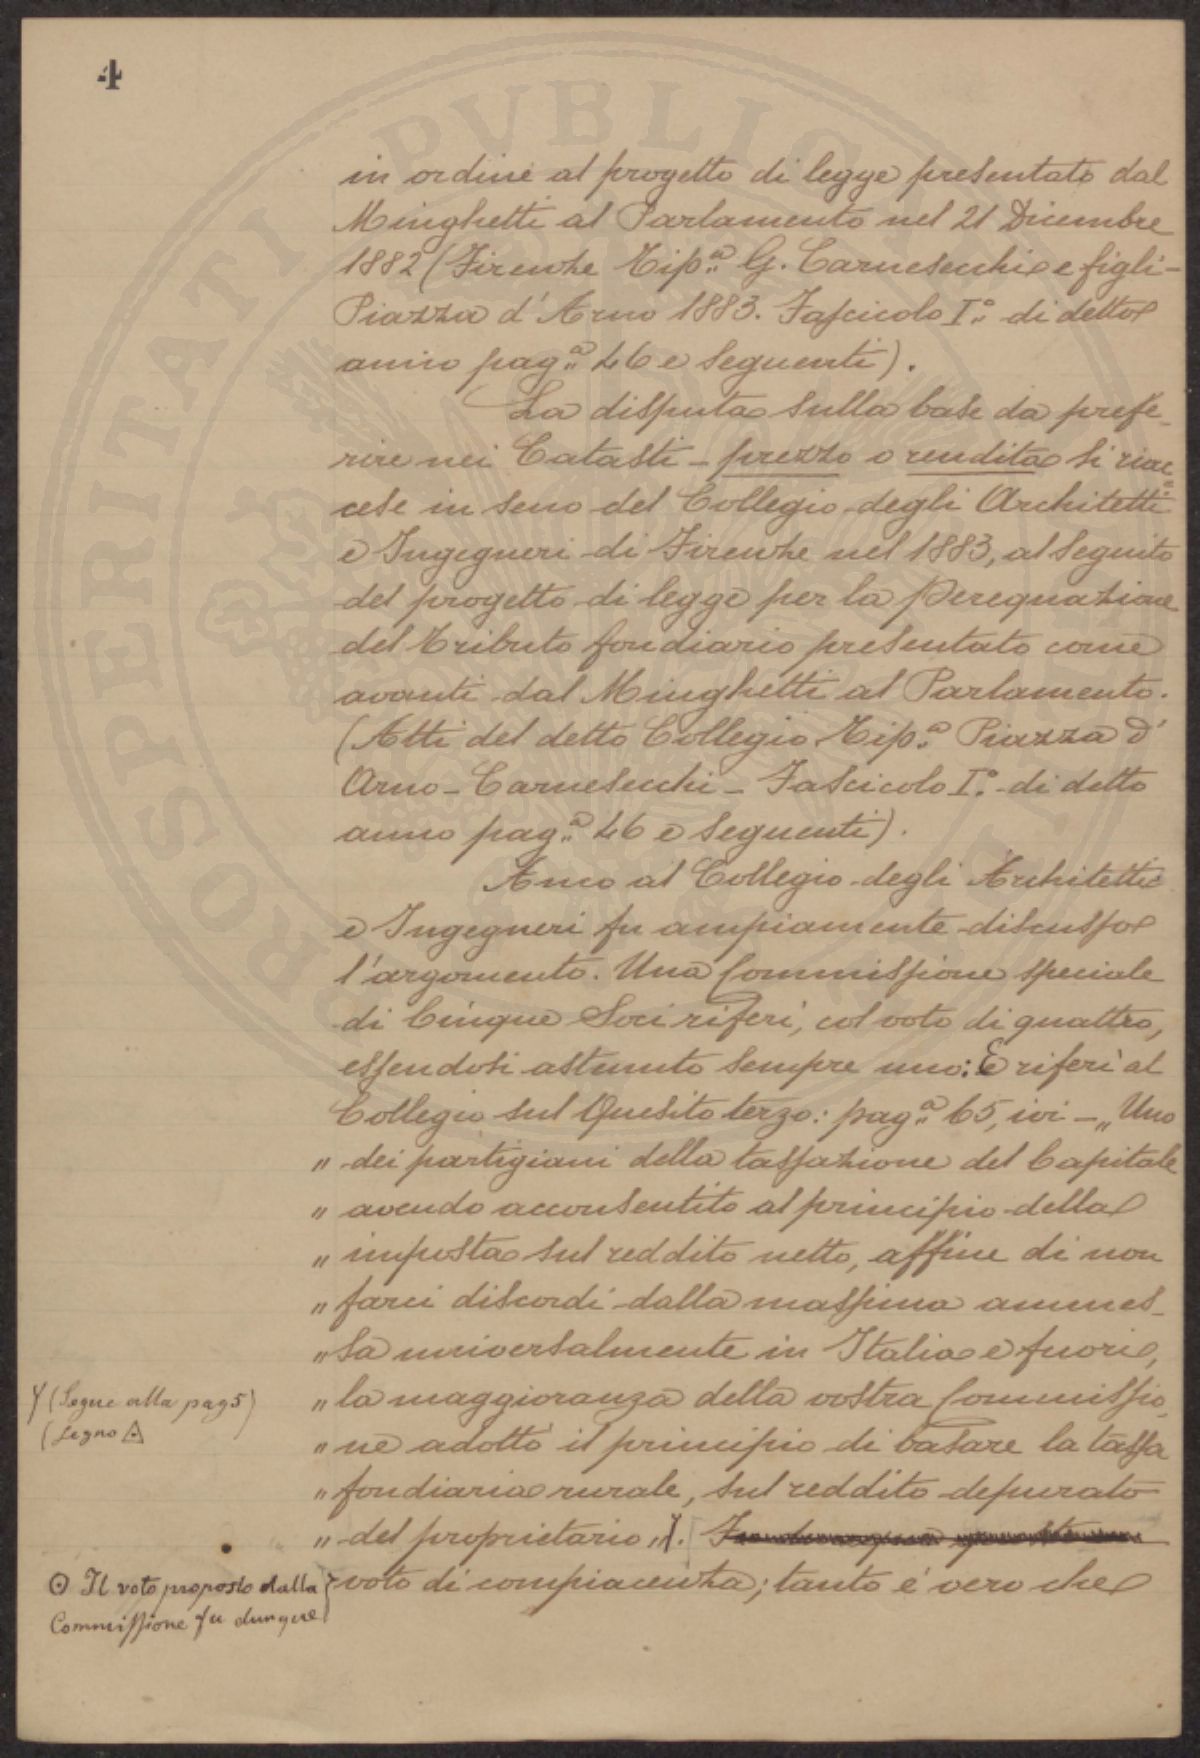 4
in ordine al progetto di legge presentato dal
Minghetti al Parlamento nel 21 Dicembre
1882 (Firenze Tip.ª G. Carnesecchi e figli-
Piazza d'Arno 1883. Fascicolo I.º di detto
anno pag.ª 46 e seguenti).
La disputa sulla base da prefe-
rire nei Catasti - prezzo o rendita si riac=
cese in seno del Collegio degli Architetti
e Ingegneri di Firenze nel 1883, al seguito
del progetto di legge per la Perequazione
del tributo fondiario presentato come
avanti dal Minghetti al Parlamento.
(Atti del detto Collegio Tip.ª Piazza d'
Arno - Carnesecchi - Fascicolo I.º di detto
anno pag.ª 46 e seguenti).
Anco al Collegio degli Architetti
e Ingegneri fu ampiamente discusso
l'argomento. Una Commissione speciale
di Cinque Soci riferì, col voto di quattro,
essendosi astenuto sempre uno: E riferì al
Collegio sul Quesito terzo: pag.ª 65, ivi - „ Uno
„ dei partigiani della tassazione del Capitale
„ avendo acconsentito al principio della
„ imposta sul reddito netto, affine di non
„ farci discordi dalla massima ammes-
„ sa universalmente in Italia e fuori,
„ la maggioranza della vostra Commissio-
„ ne adottò il principio di basare la tassa
„ fondiaria rurale, sul reddito depurato
„ del proprietario „.
voto di compiacenza; tanto è vero che
(Segue alla pag 5)
(segno
⊙ Il voto proposto dalla
Commissione fu dunque
PROSPERITATI PUBLICAE